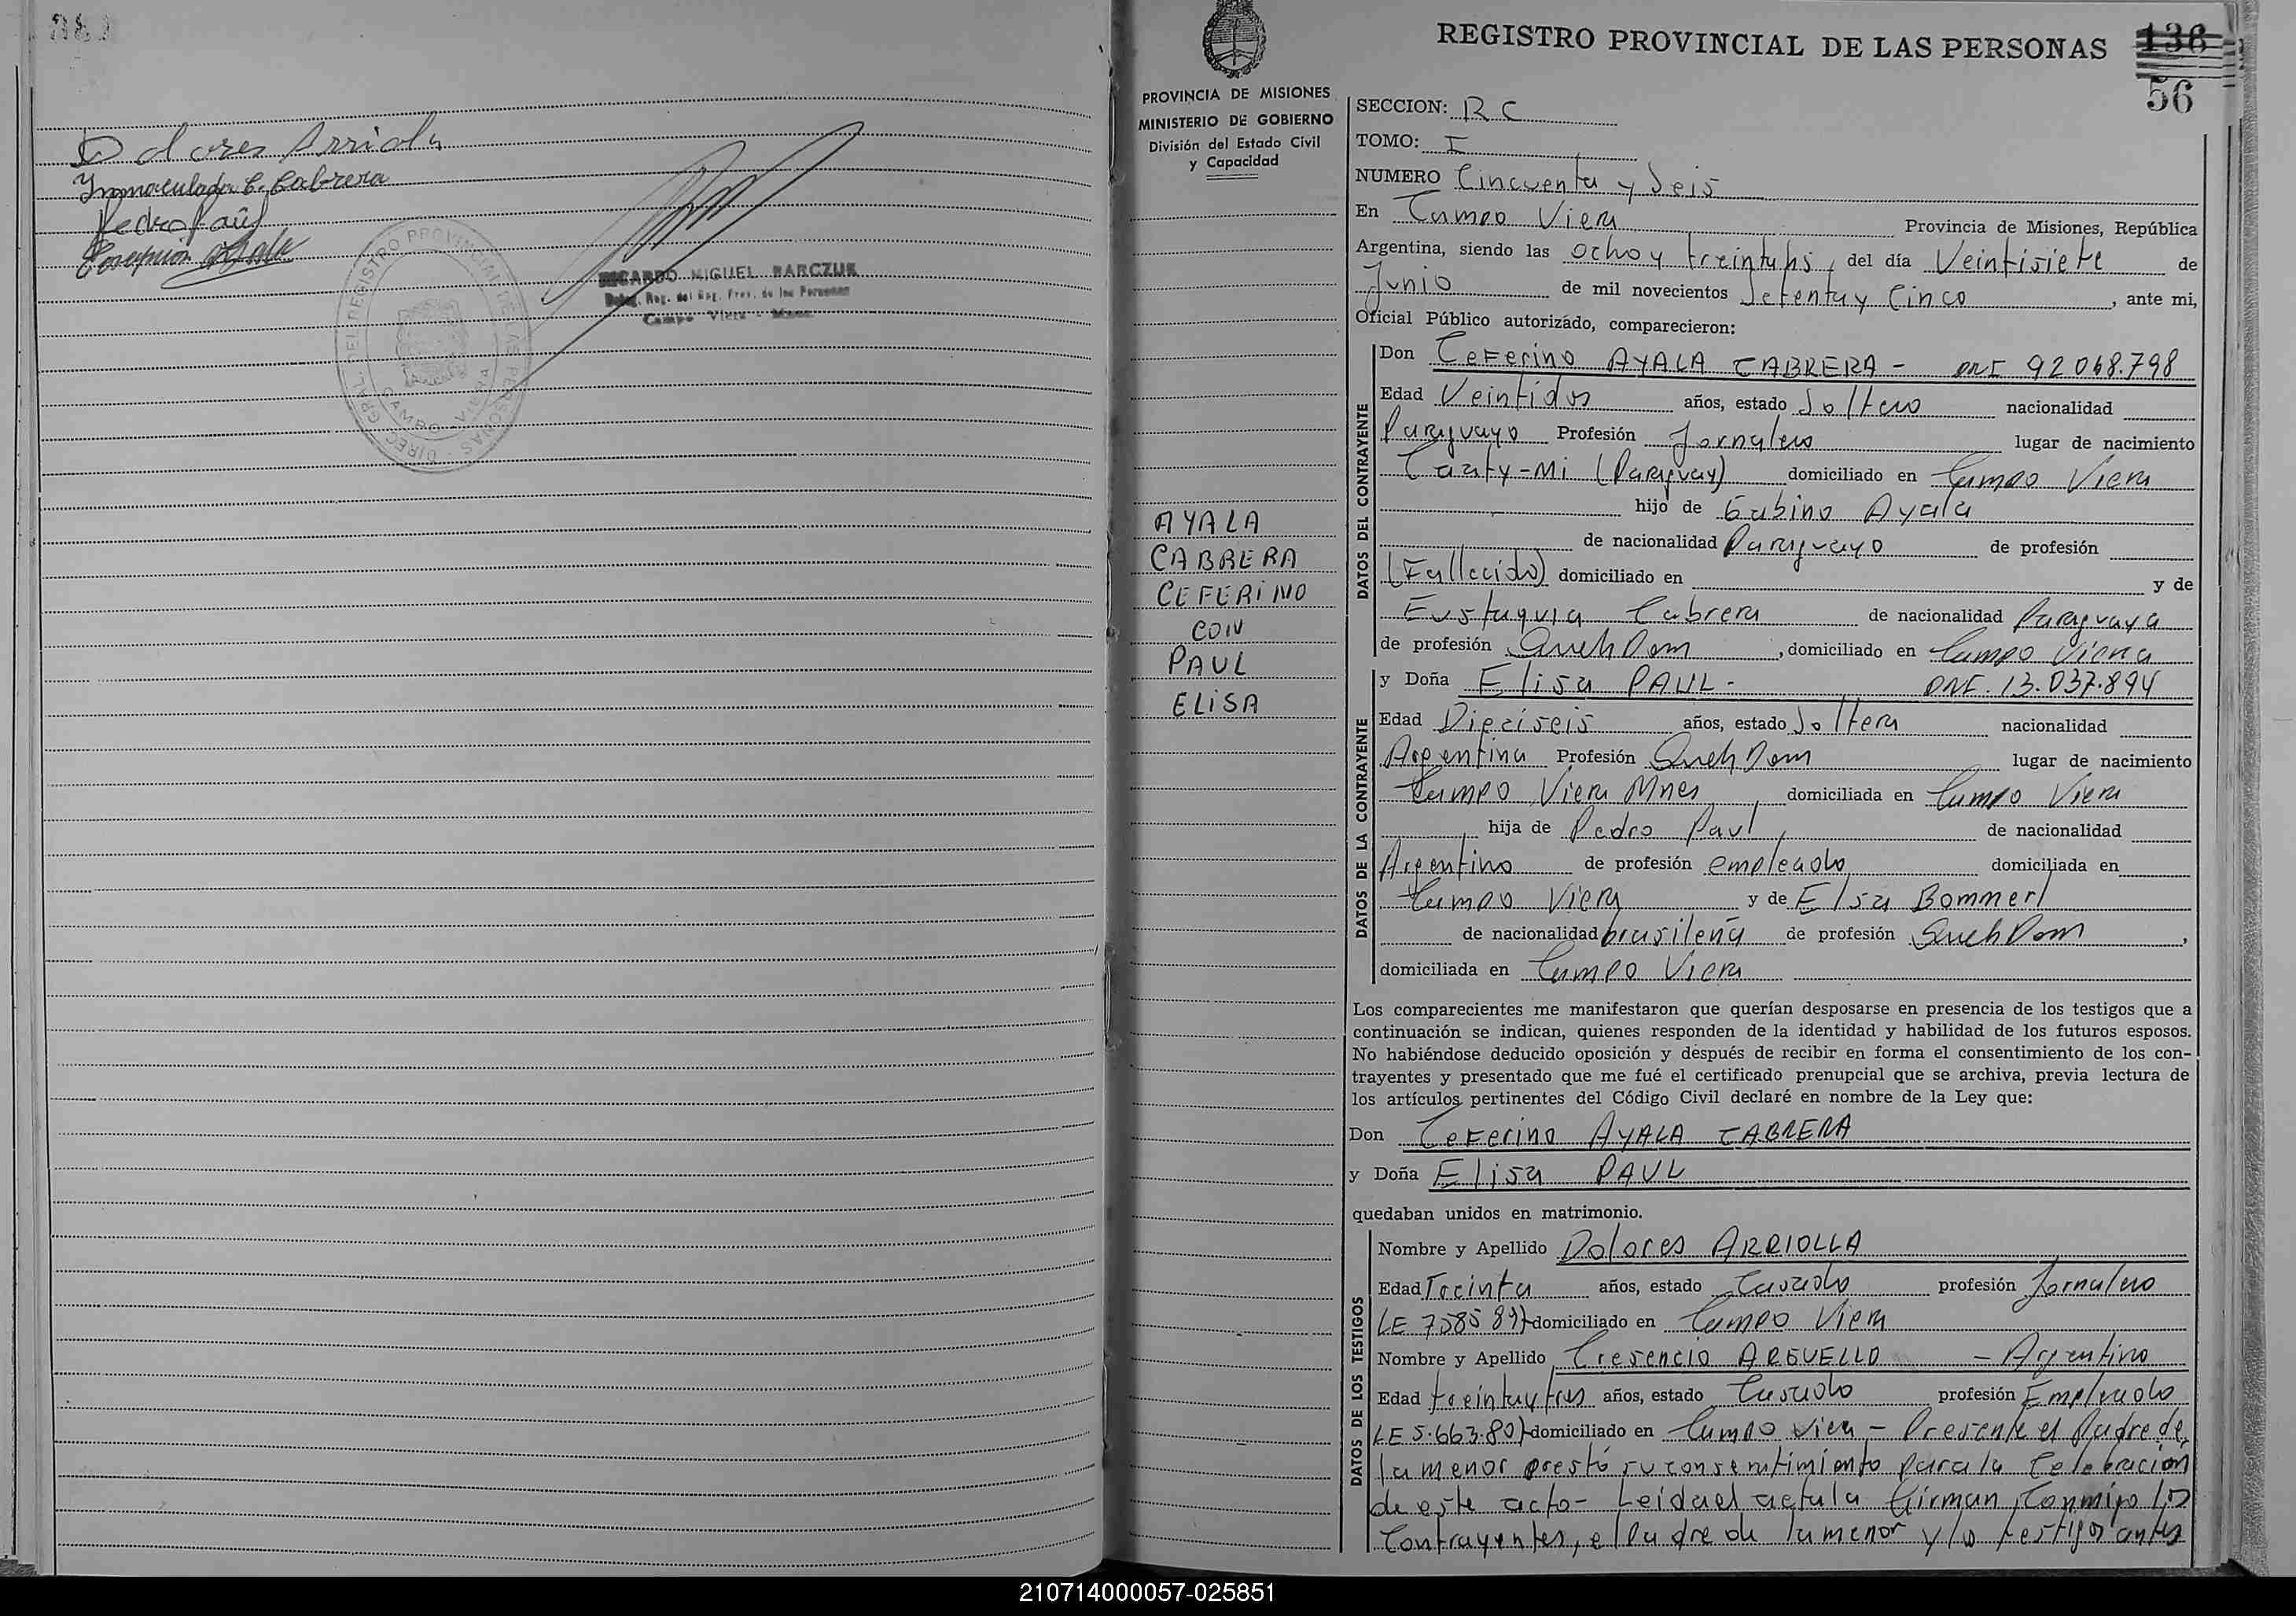 Dolores Arriola
Inmaculada C. Cabrera
Pedro Paul
RICARDO MIGUEL BARCZUK
Deleg. Reg. del Reg. Prov. de las Personas
Campo Viera - Mnes.
DIREC. GRAL. DEL REGISTRO PROVINCIAL DE LAS PERSONAS
CAMPO VIERA
PROVINCIA DE MISIONES
MINISTERIO DE GOBIERNO
División del Estado Civil
y Capacidad
AYALA
CABRERA
CEFERINO
CON
PAUL
ELISA
REGISTRO PROVINCIAL DE LAS PERSONAS
136
56
SECCION: RC
TOMO: I
NUMERO Cincuenta y Seis
En Campo Viera Provincia de Misiones, República
Argentina, siendo las ocho y treinta hs, del día Veintisiete de
Junio de mil novecientos Setenta y Cinco, ante mi,
Oficial Público autorizado, comparecieron:
DATOS DEL CONTRAYENTE
Don Ceferino AYALA CABRERA - DNI 92068.798
Edad Veintidos años, estado Soltero nacionalidad
Paraguayo Profesión Jornalero lugar de nacimiento
Caaty-Mi (Paraguay) domiciliado en Campo Viera
hijo de Gabino Ayala
de nacionalidad Paraguayo de profesión
(Fallecido) domiciliado en y de
Eustaquia Cabrera de nacionalidad Paraguaya
de profesión Queh Dom, domiciliado en Campo Viera
DATOS DE LA CONTRAYENTE
y Doña Elisa PAUL - DNI. 13.037.894
Edad Dieciseis años, estado Soltera nacionalidad
Argentina Profesión Queh Dom lugar de nacimiento
Campo Viera Mnes domiciliada en Campo Viera
hija de Pedro Paul, de nacionalidad
Argentino de profesión empleado domiciliada en
Campo Viera y de Elsa Bommerl
de nacionalidad brasileña de profesión Queh Dom,
domiciliada en Campo Viera
Los comparecientes me manifestaron que querían desposarse en presencia de los testigos que a
continuación se indican, quienes responden de la identidad y habilidad de los futuros esposos.
No habiéndose deducido oposición y después de recibir en forma el consentimiento de los con-
trayentes y presentado que me fué el certificado prenupcial que se archiva, previa lectura de
los artículos pertinentes del Código Civil declaré en nombre de la Ley que:
Don Ceferino AYALA CABRERA
y Doña Elisa PAUL
quedaban unidos en matrimonio.
DATOS DE LOS TESTIGOS
Nombre y Apellido Dolores ARRIOLLA
Edad Treinta años, estado Casado profesión Jornalero
LE 7585 897 domiciliado en Campo Viera
Nombre y Apellido Cresencio ARGUELLO - Argentino
Edad treinta y tres años, estado Casado profesión Empleado
LE 5.663.807 domiciliado en Campo Viera - Presente el Padre de
la menor prestó su consentimiento para la Celebracion
de este acto - Leida el acta la firman Conmigo los
Contrayentes, el Padre de la menor y los testigos antes
210714000057-025851